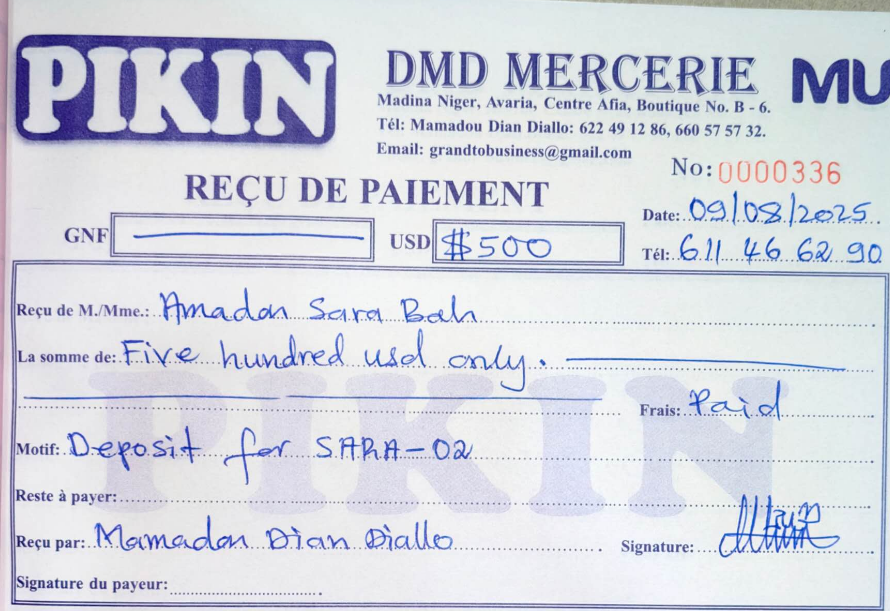 PIKIN
DMD MERCERIE
MU
Madina Niger, Avaria, Centre Afia, Boutique No. B - 6.
Tél: Mamadou Dian Diallo: 622 49 12 86, 660 57 57 32.
Email: grandtobusiness@gmail.com
No: 0000336
REÇU DE PAIEMENT
Date: 09/08/2025
GNF
USD $500
Tél: 611 46 62 90
Reçu de M./Mme.: Amadou Sara Bah
La somme de: Five hundred usd only.
Frais: Paid
Motif: Deposit for SARA-02
Reste à payer:
Reçu par: Mamadou Dian Diallo
Signature:
Signature du payeur:
PIKIN